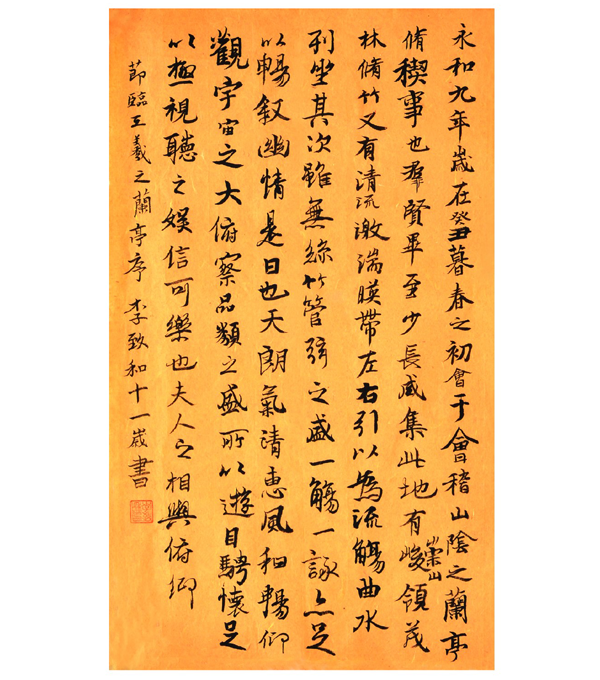 永和九年歲在癸丑暮春之初會于會稽山陰之蘭亭
脩稧事也羣賢畢至少長咸集此地有崇山峻領茂
林脩竹又有清流激湍暎帶左右引以為流觴曲水
列坐其次雖無絲竹管弦之盛一觴一詠亦足
以暢叙幽情是日也天朗氣清恵風和暢仰
觀宇宙之大俯察品類之盛所以遊目騁懷足
以極視聽之娛信可樂也夫人之相與俯仰
節臨王羲之蘭亭序 李致和十一歲書